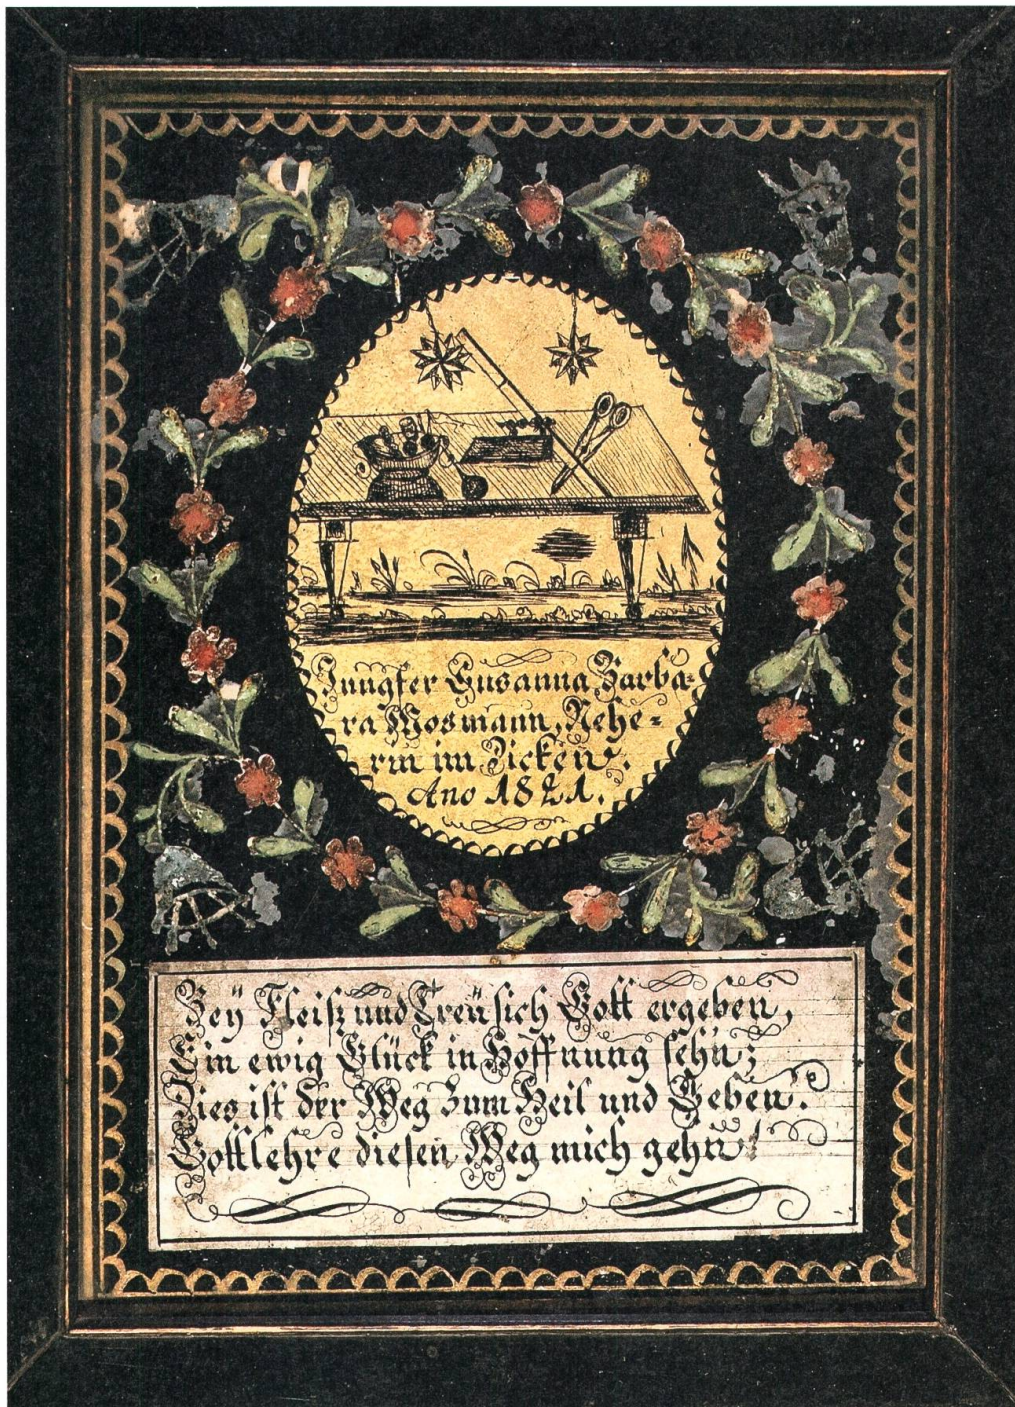 Jungfer Susanna Barba=
ra Mosmann, Nehe=
rin im Dicken.
Ano 1821.
Beÿ Fleiß und Treü sich Gott ergeben,
Ein ewig Glück in Hoffnung sehn;
Dies ist der Weg zum Heil und Leben.
Gott lehre diesen Weg mich gehn!